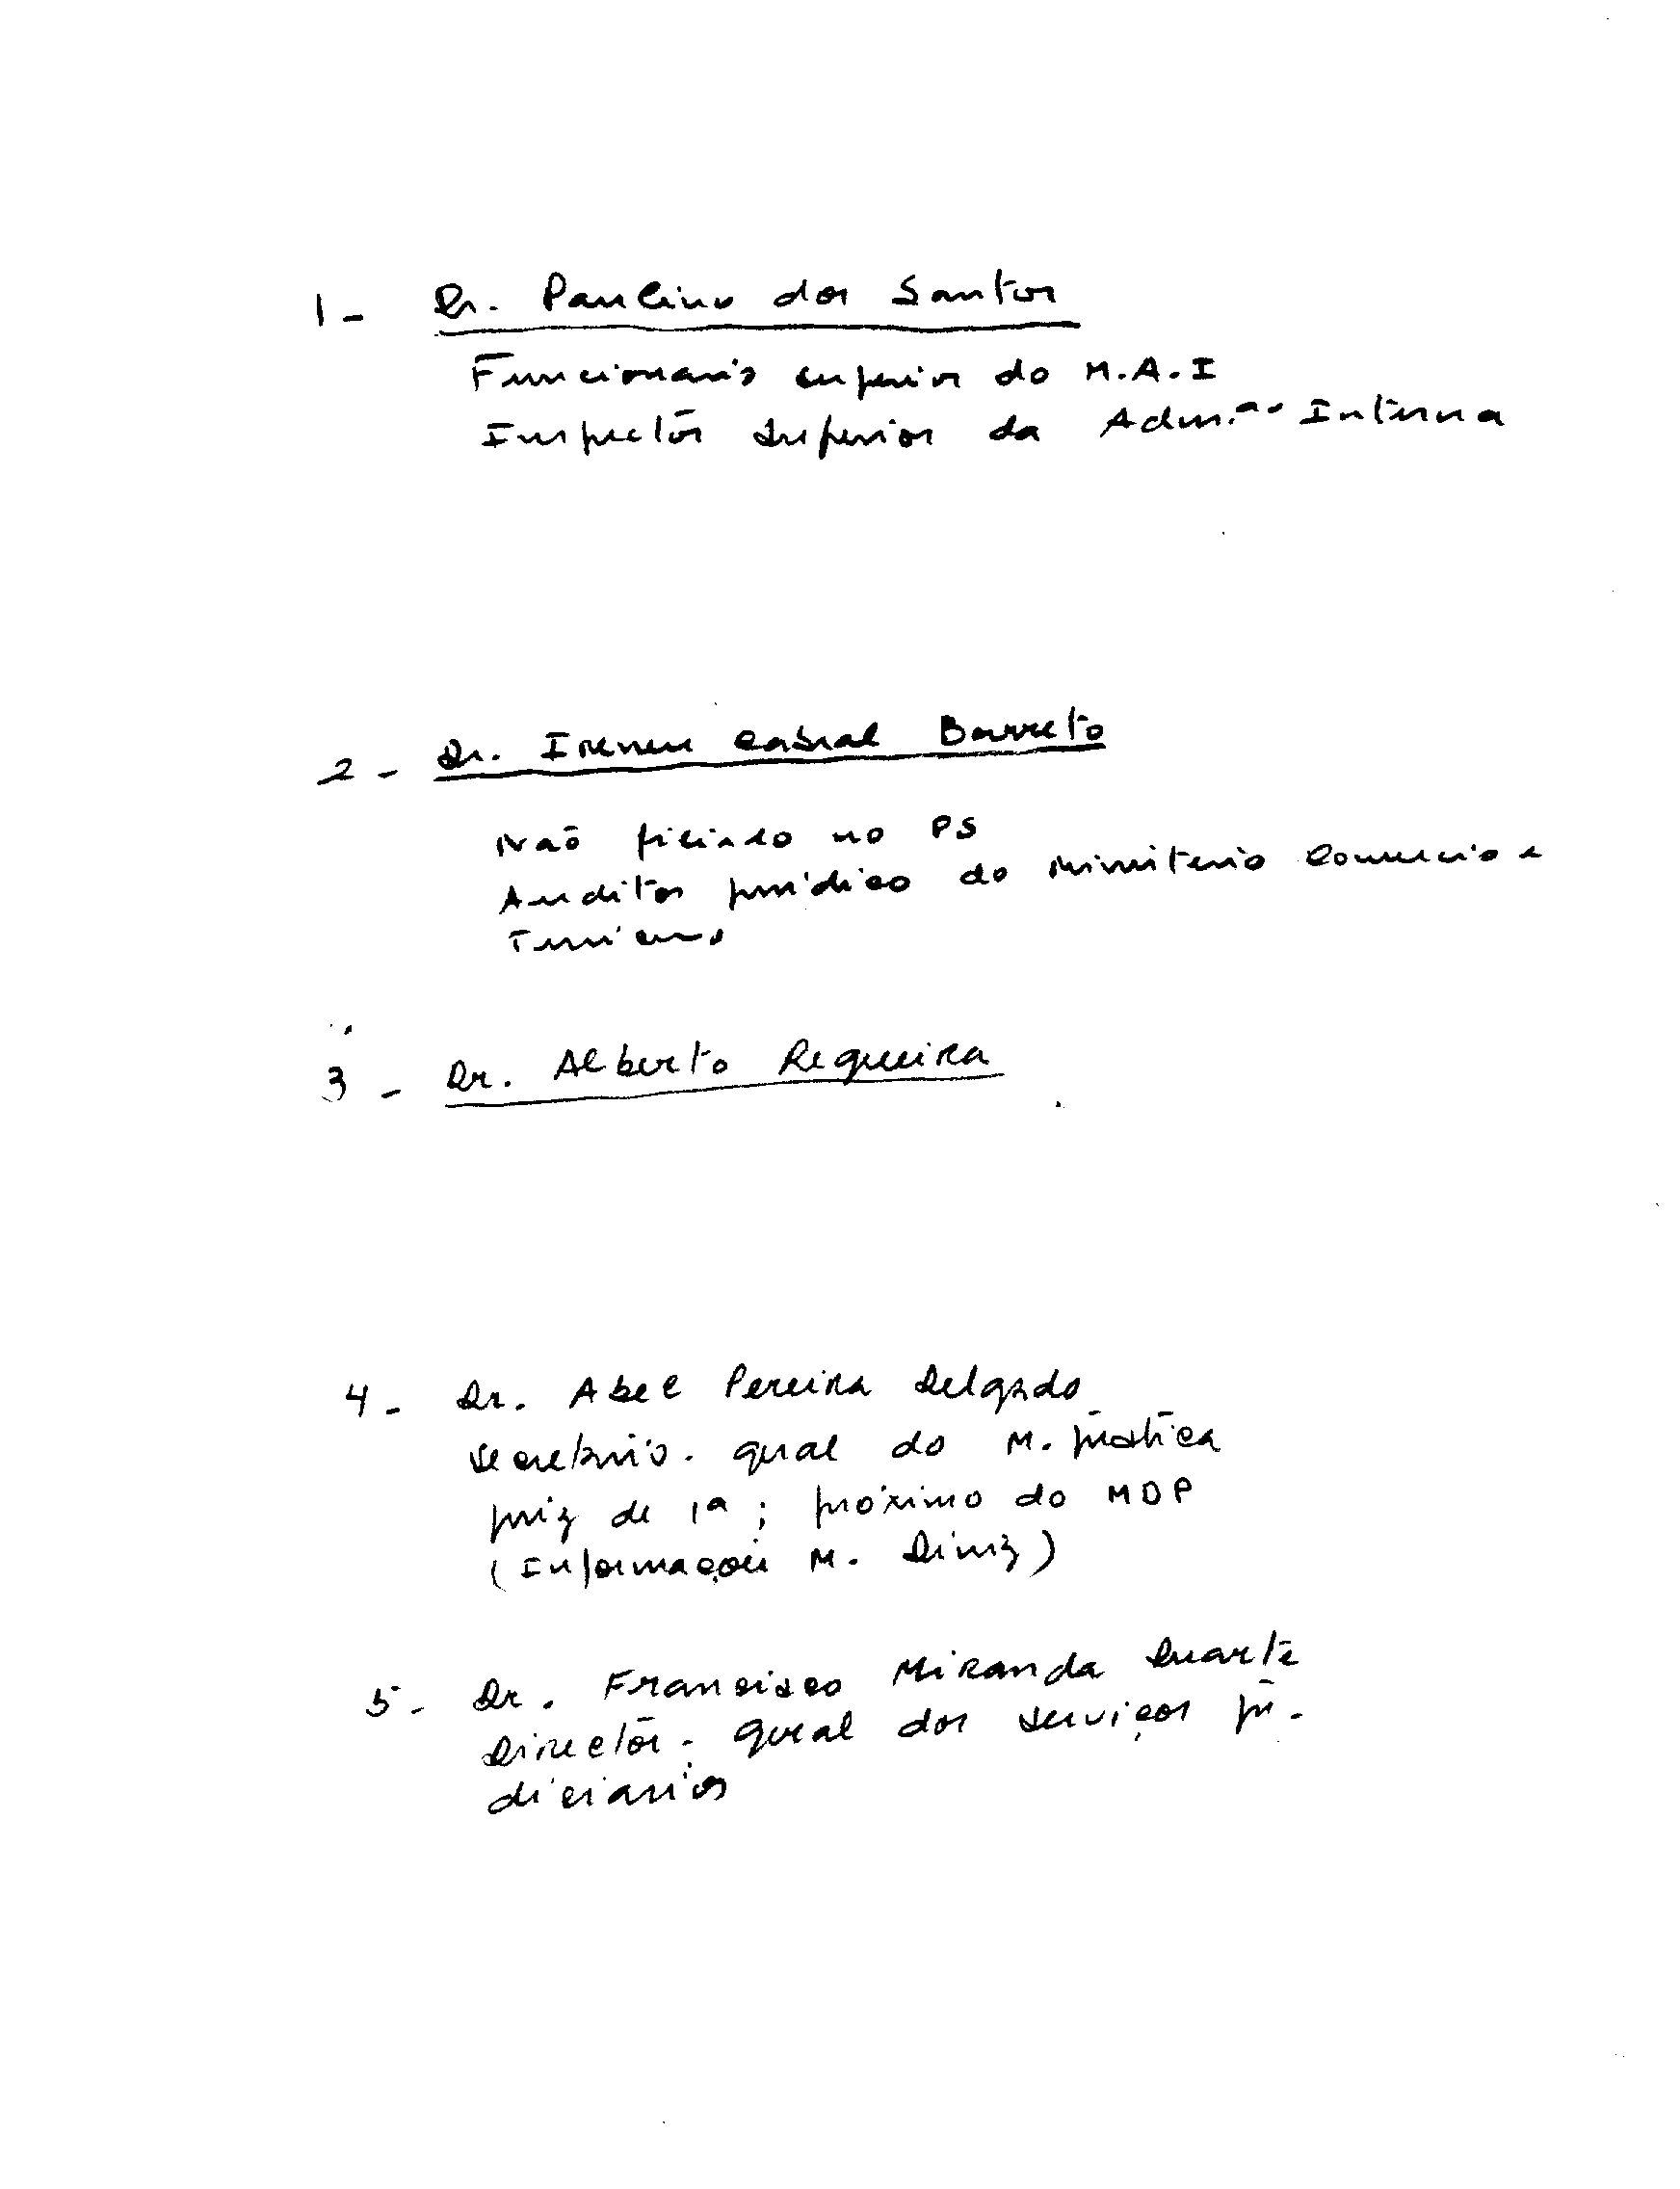 1 - Dr. Paulino dos Santos
Funcionario superior do M.A.I
Inspector Superior da Adm.ª Interna
2 - Dr. Ireneu Cabral Barreto
Não filiado no PS
Auditor jurídico do Ministerio Comercio e
Turismo
3 - Dr. Alberto Regueira
4 - Dr. Abel Pereira Delgado
Secretário-geral do M. justiça
juiz de 1ª ; próximo do MDP
(Informações M. Diniz)
5 - Dr. Francisco Miranda Duarte
Director-geral dos serviços ju-
diciarios